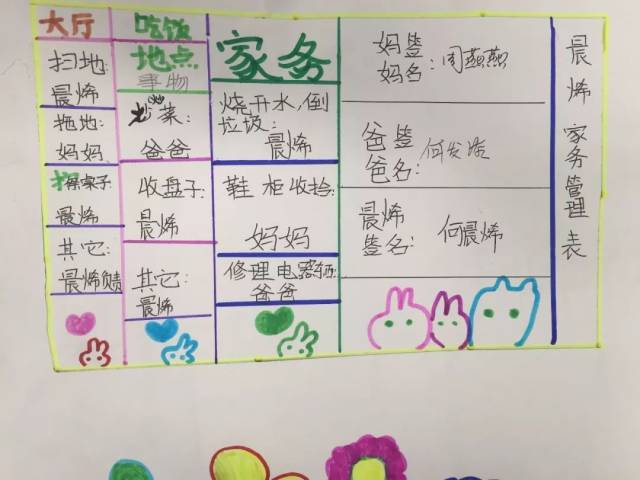 大厅
扫地:
晨烯
拖地:
妈妈
擦桌子
晨烯
其它:
晨烯负责
吃饭
地点
事物
炒菜:
爸爸
收盘子:
晨烯
其它:
晨烯
家务
烧开水,倒
垃圾:
晨烯
鞋柜收拾
妈妈
修理电器东西:
爸爸
妈签
妈名:周燕燕
爸签
爸名:
晨烯
签名:何晨烯
晨烯家务管理表